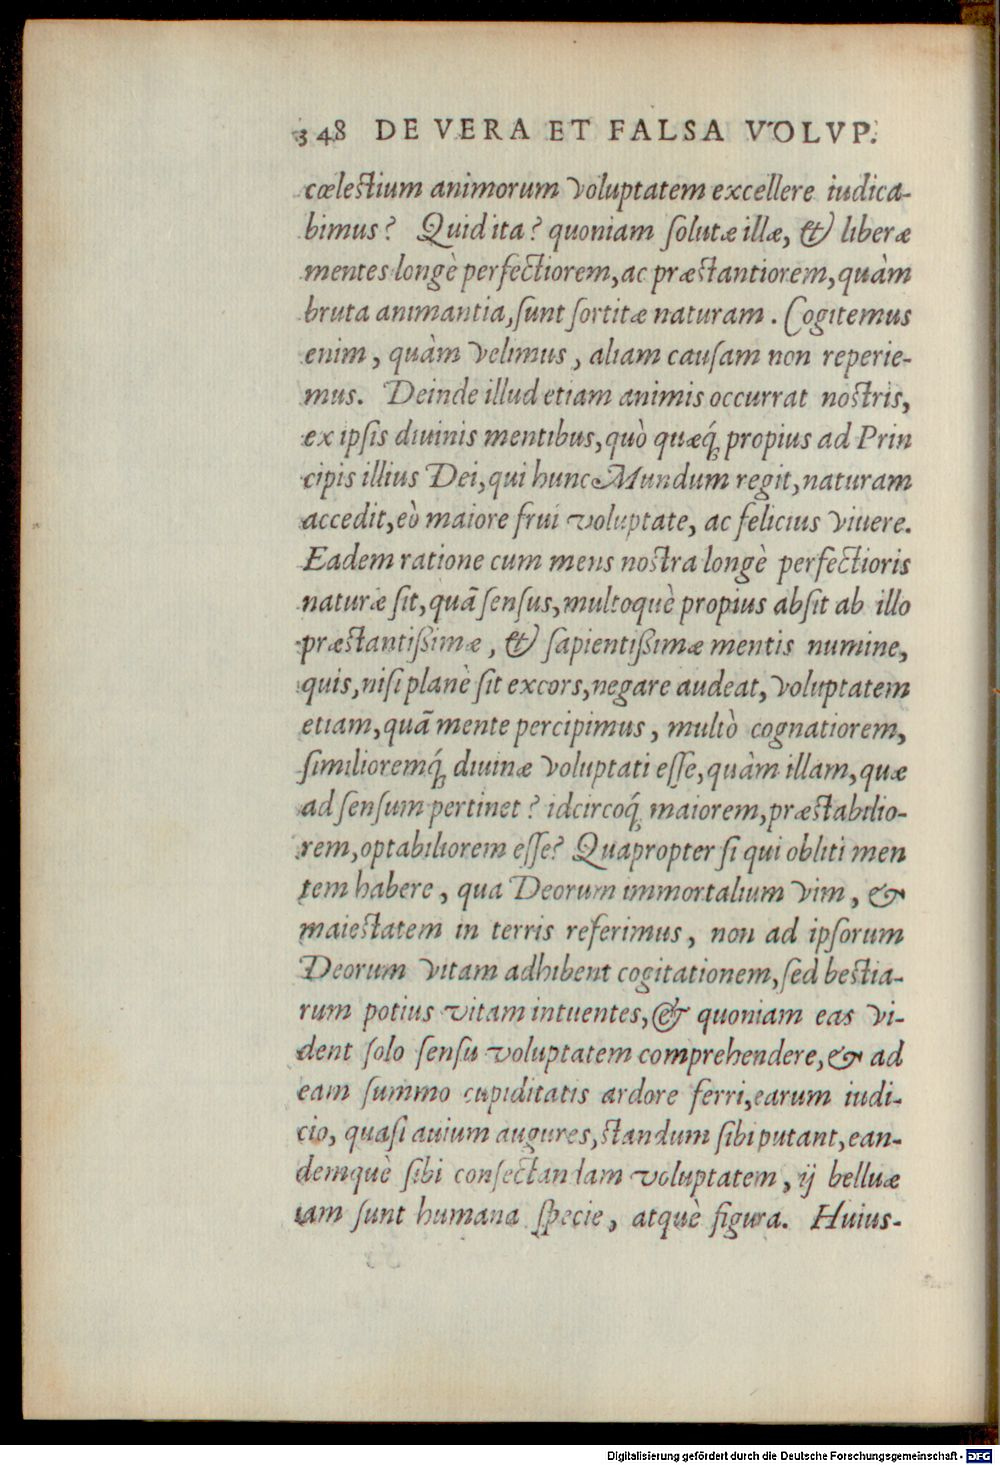 348 DE VERA ET FALSA VOLVP.
cœlestium animorum voluptatem excellere iudica-
bimus? Quid ita? quoniam solutæ illæ, & liberæ
mentes longè perfectiorem, ac præstantiorem, quàm
bruta animantia, sunt sortitæ naturam. Cogitemus
enim, quàm velimus, aliam causam non reperie-
mus. Deinde illud etiam animis occurrat nostris,
ex ipsis diuinis mentibus, quò quæq́; propius ad Prin
cipis illius Dei, qui hunc Mundum regit, naturam
accedit, eò maiore frui voluptate, ac felicius viuere.
Eadem ratione cum mens nostra longè perfectioris
naturæ sit, quā sensus, multoquè propius absit ab illo
præstantißimæ, & sapientißimæ mentis numine,
quis, nisi planè sit excors, negare audeat, voluptatem
etiam, quā mente percipimus, multò cognatiorem,
similioremq́; diuinæ voluptati esse, quàm illam, quæ
ad sensum pertinet? idcircoq́; maiorem, præstabilio-
rem, optabiliorem esse? Quapropter si qui obliti men
tem habere, qua Deorum immortalium vim, &
maiestatem in terris referimus, non ad ipsorum
Deorum vitam adhibent cogitationem, sed bestia-
rum potius vitam intuentes, & quoniam eas vi-
dent solo sensu voluptatem comprehendere, & ad
eam summo cupiditatis ardore ferri, earum iudi-
cio, quasi auium augures, standum sibi putant, ean-
demquè sibi consectandam voluptatem, ij belluæ
iam sunt humana specie, atquè figura. Huius-
Digitalisierung gefördert durch die Deutsche Forschungsgemeinschaft - DFG